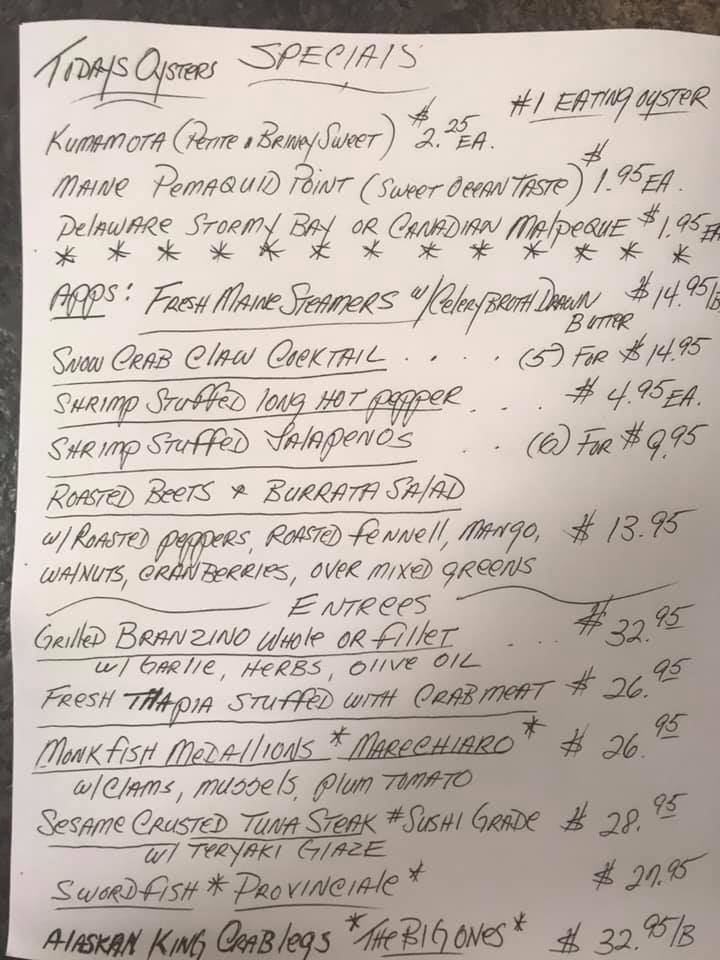 TODAYS OYSTERS SPECIALS
#1 EATING OYSTER
KUMAMOTA (PETITE & BRINEY SWEET) $2.25 EA.
MAINE PEMAQUID POINT (SWEET OCEAN TASTE) $1.95 EA.
DELAWARE STORMY BAY OR CANADIAN MALPEQUE $1.95 EA
* * * * * * * * * * * * *
APPS: FRESH MAINE STEAMERS W/CELERY BROTH DRAWN $14.95/B
BUTTER
SNOW CRAB CLAW COCKTAIL . . . . (5) FOR $14.95
SHRIMP STUFFED LONG HOT PEPPER . . . $4.95 EA.
SHRIMP STUFFED JALAPENOS . . (6) FOR $9.95
ROASTED BEETS & BURRATA SALAD
W/ROASTED PEPPERS, ROASTED FENNELL, MANGO, $13.95
WALNUTS, CRANBERRIES, OVER MIXED GREENS
ENTREES
GRILLED BRANZINO WHOLE OR FILLET . . . $32.95
W/ GARLIC, HERBS, OLIVE OIL
FRESH TILAPIA STUFFED WITH CRABMEAT $26.95
MONKFISH MEDALLIONS *MARECHIARO* $26.95
W/CLAMS, MUSSELS, PLUM TOMATO
SESAME CRUSTED TUNA STEAK #SUSHI GRADE $28.95
W/ TERYAKI GLAZE
SWORDFISH *PROVINCIALE* $27.95
ALASKAN KING CRAB LEGS *THE BIG ONES* $32.95/B